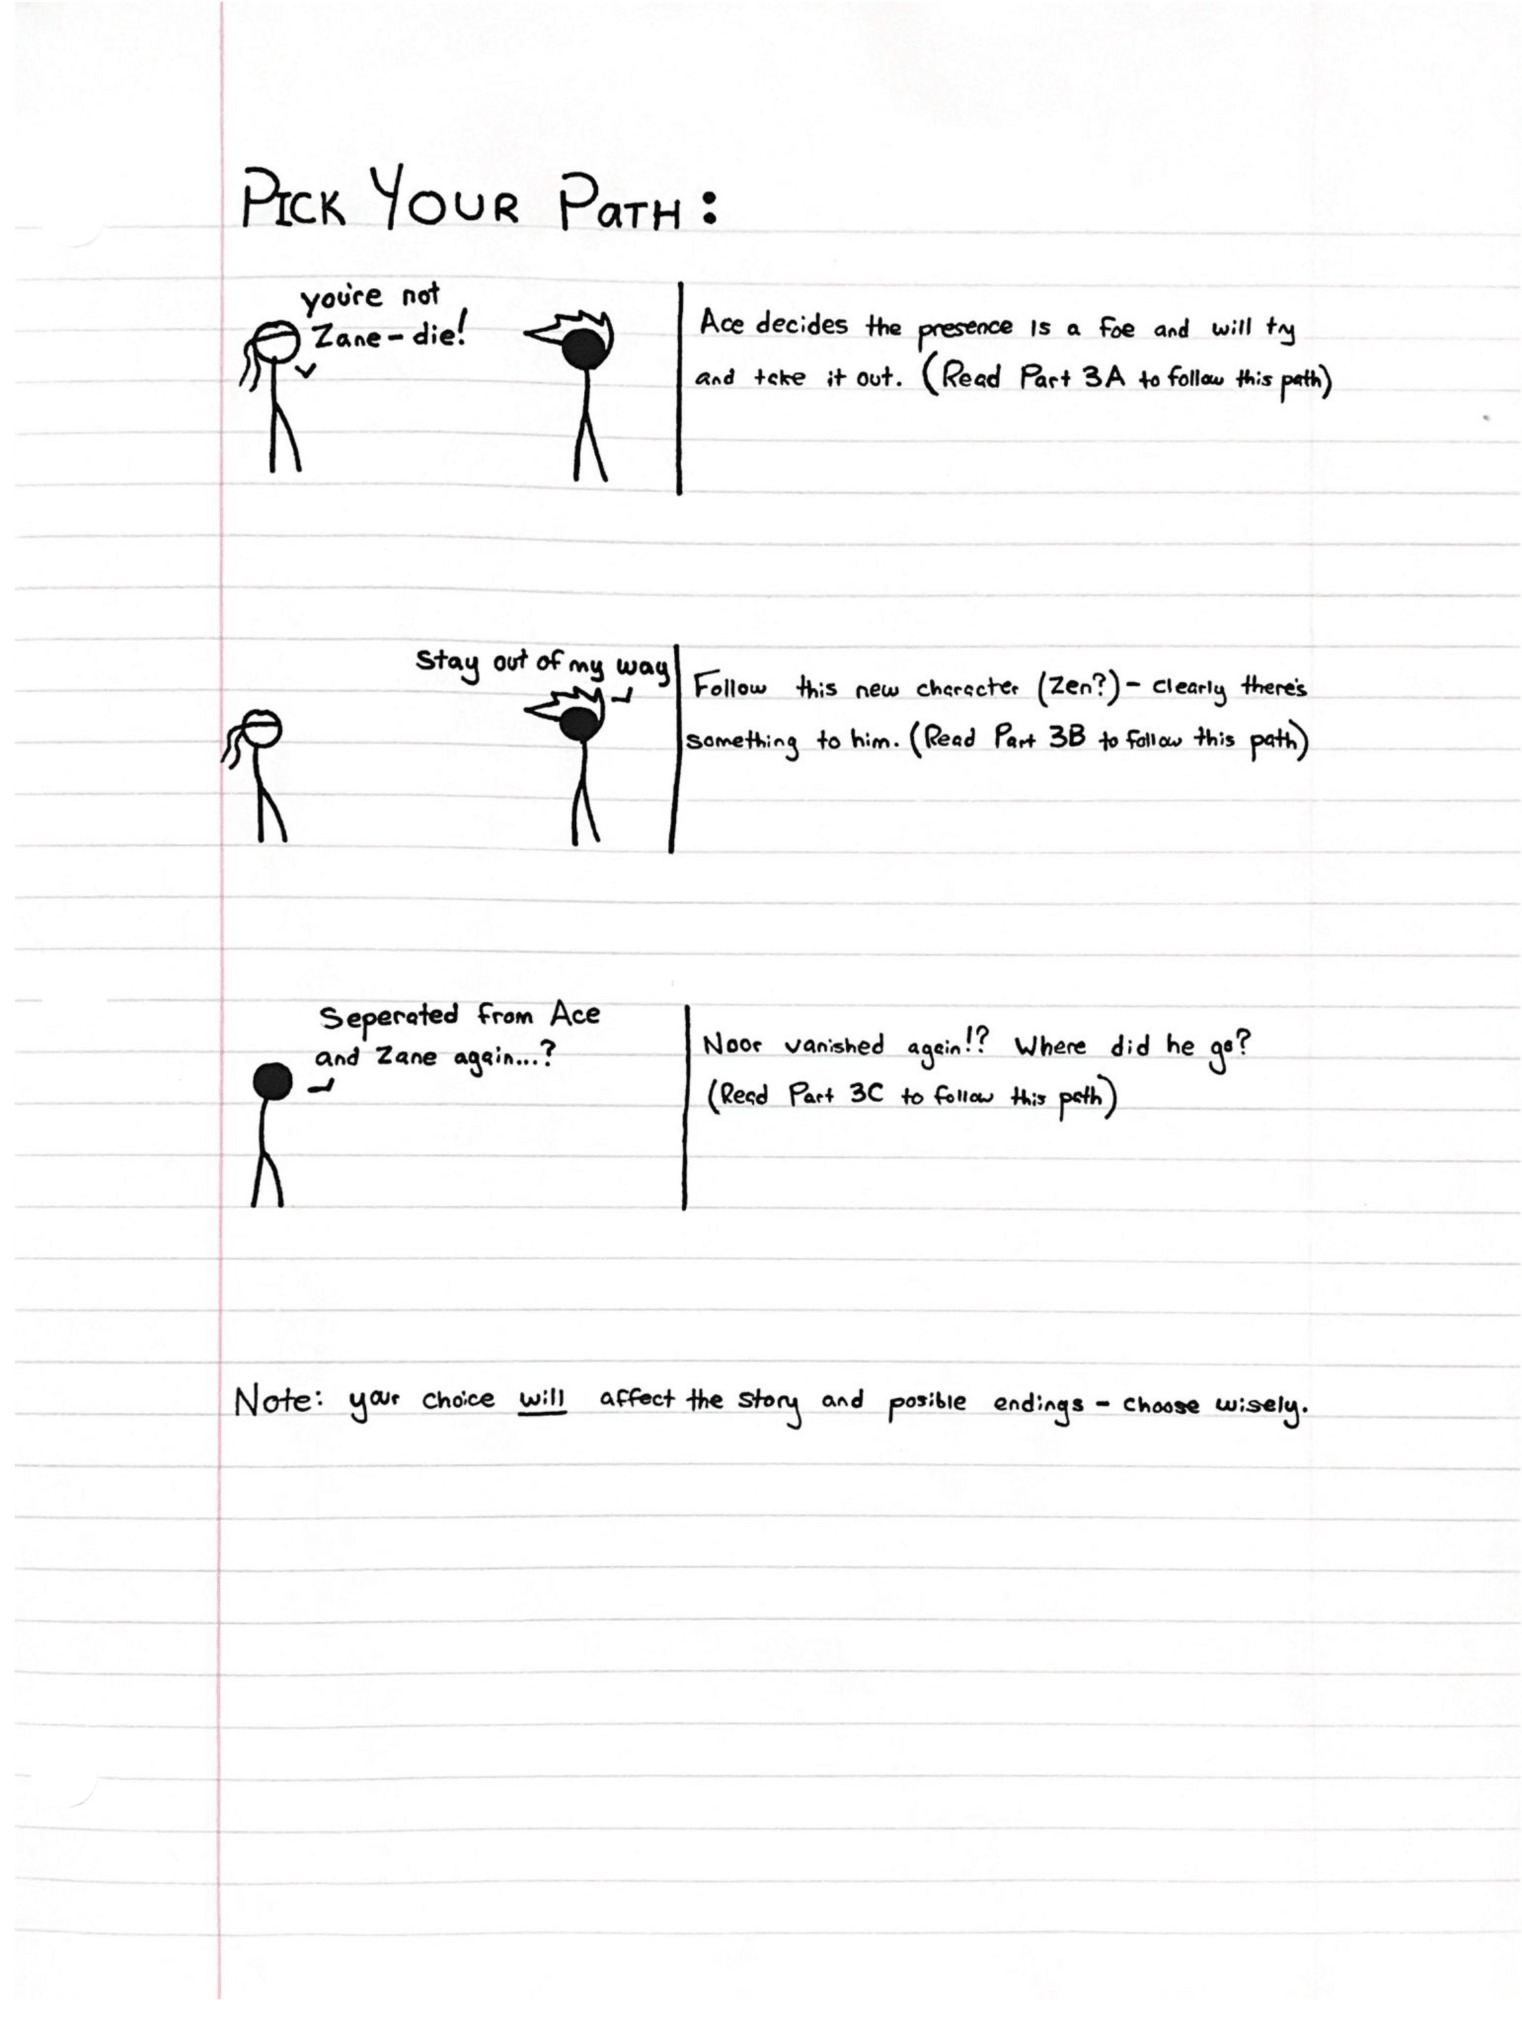 PICK YOUR PATH:
you're not
Zane - die!
Ace decides the presence is a foe and will try
and take it out. (Read Part 3A to follow this path)
Stay out of my way
Follow this new character (Zen?) - clearly there's
something to him. (Read Part 3B to follow this path)
Seperated from Ace
and Zane again...?
Noor vanished again!? Where did he go?
(Read Part 3C to follow this path)
Note: your choice will affect the story and posible endings - choose wisely.